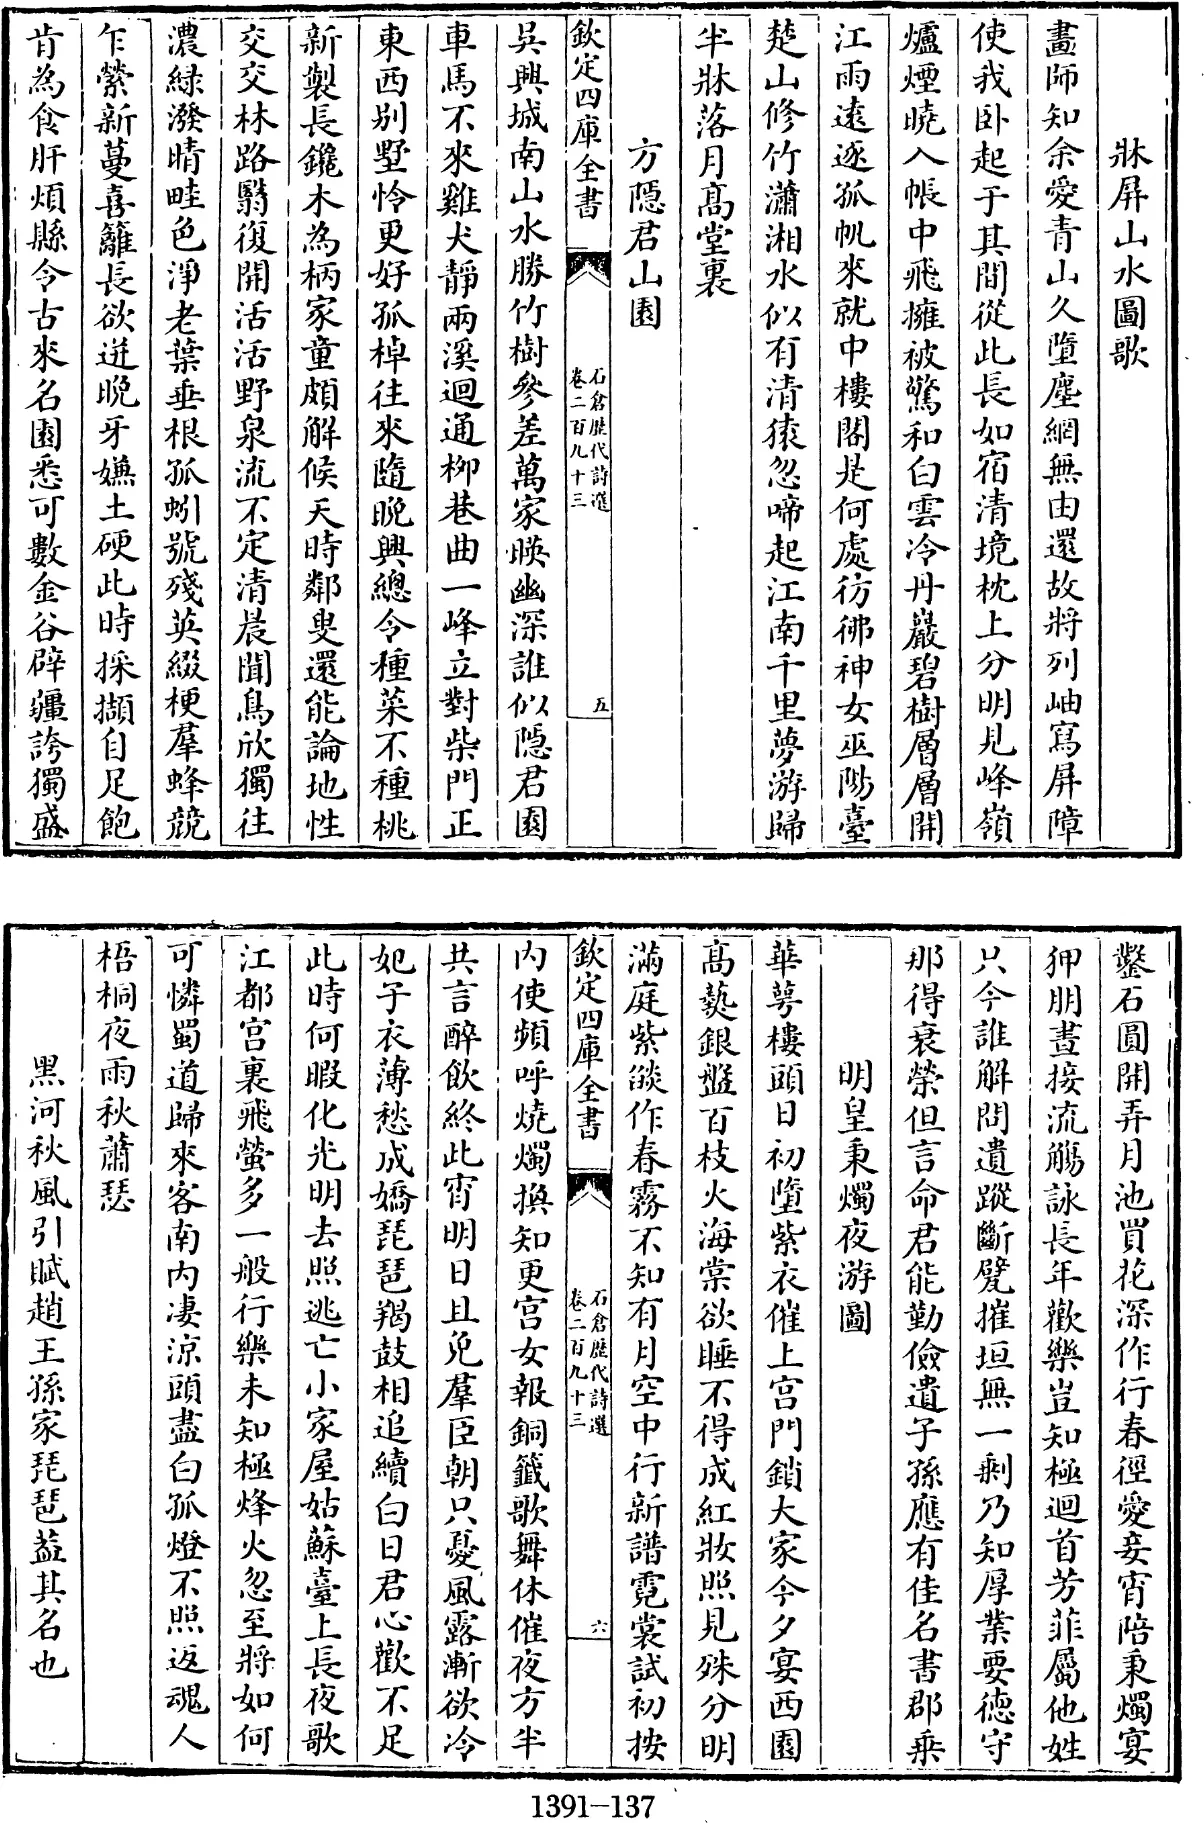 牀屏山水圖歌
畫師知余愛青山久墮塵網無由還故將列岫寫屏障
使我卧起于其間從此長如宿清境枕上分明見峰嶺
爐煙曉入帳中飛擁被驚和白雲冷丹巖碧樹層層開
江雨遠逐孤帆來就中樓閣是何處彷彿神女巫陽臺
楚山修竹瀟湘水似有清猿忽啼起江南千里夢游歸
半牀落月髙堂裏
方隱君山園
欽定四庫全書
石倉歷代詩選
卷二百九十三
五
吳興城南山水勝竹樹參差萬家暎幽深誰似隱君園
車馬不來雞犬靜兩溪迴通柳巷曲一峰立對柴門正
東西别墅怜更好孤棹往來隨晚興總令種菜不種桃
新製長鑱木為柄家童頗解候天時鄰叟還能論地性
交交林路翳復開活活野泉流不定清晨聞鳥欣獨往
濃綠潑晴畦色淨老葉垂根孤蚓號殘英綴梗羣蜂競
乍縈新蔓喜籬長欲迸晩牙嫌土硬此時採擷自足飽
肯為食肝煩縣令古來名園悉可數金谷辟疆誇獨盛
鑿石圓開弄月池買花深作行春徑愛妾宵陪秉燭宴
狎朋晝接流觴詠長年歡樂豈知極迴首芳菲屬他姓
只今誰解問遺蹤斷甓摧垣無一剰乃知厚業要德守
那得衰榮但言命君能勤儉遺子孫應有佳名書郡乗
明皇秉燭夜游圖
華萼樓頭日初墮紫衣催上宫門鎖大家今夕宴西園
髙爇銀盤百枝火海棠欲睡不得成紅妝照見殊分明
滿庭紫燄作春霧不知有月空中行新譜霓裳試初按
欽定四庫全書
石倉歷代詩選
卷二百九十三
六
内使頻呼燒燭換知更宫女報銅籤歌舞休催夜方半
共言醉飲終此宵明日且免羣臣朝只憂風露漸欲冷
妃子衣薄愁成嬌琵琶羯鼓相追續白日君心歡不足
此時何暇化光明去照逃亡小家屋姑蘇臺上長夜歌
江都宫裏飛螢多一般行樂未知極烽火忽至將如何
可憐蜀道歸來客南内凄涼頭盡白孤燈不照返魂人
梧桐夜雨秋蕭瑟
黑河秋風引賦趙王孫家琵琶葢其名也
1391-137